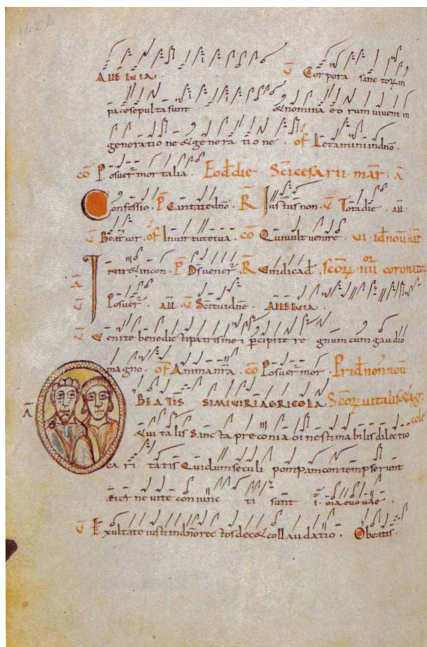 Alleluia. V Corpora sanctorum in
pace sepulta sunt & nomina eorum vivent in
generatione & generatione. of Letamini in dno.
cō Posuer mortalia Eod die Sci cesarii mar. A
Confessio. P Cantate dno. R Iustus non. V Tota die. all.
V Beatus vir. of In virtute tua. cō Qui vult venire.
Intret in con. P Ds vener R Vindica d. scor iiii coronator
V Posuer. all. V Sci tui dne. Alleluia.
V Venite benedicti patris mei percipite regnum cum gaudio
magno. of Anima nra. cō Posuer mor. Prid non nov
BEATISSIMI VIRI AGRICOLA Scor vitalis & agr
Qui talis sancta preconia o inestimabilis dilectio
caritatis Qui dum seculi pompam contempserunt
eterne vite coniuncti sunt
V Exultate iusti in dno rectos dec& collaudatio. O beatis.